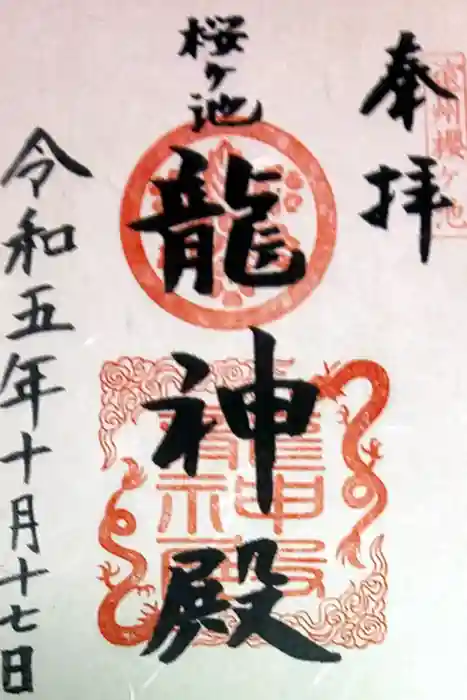 奉拝
遠州櫻ヶ池
桜ヶ池
龍神殿
令和五年十月十七日